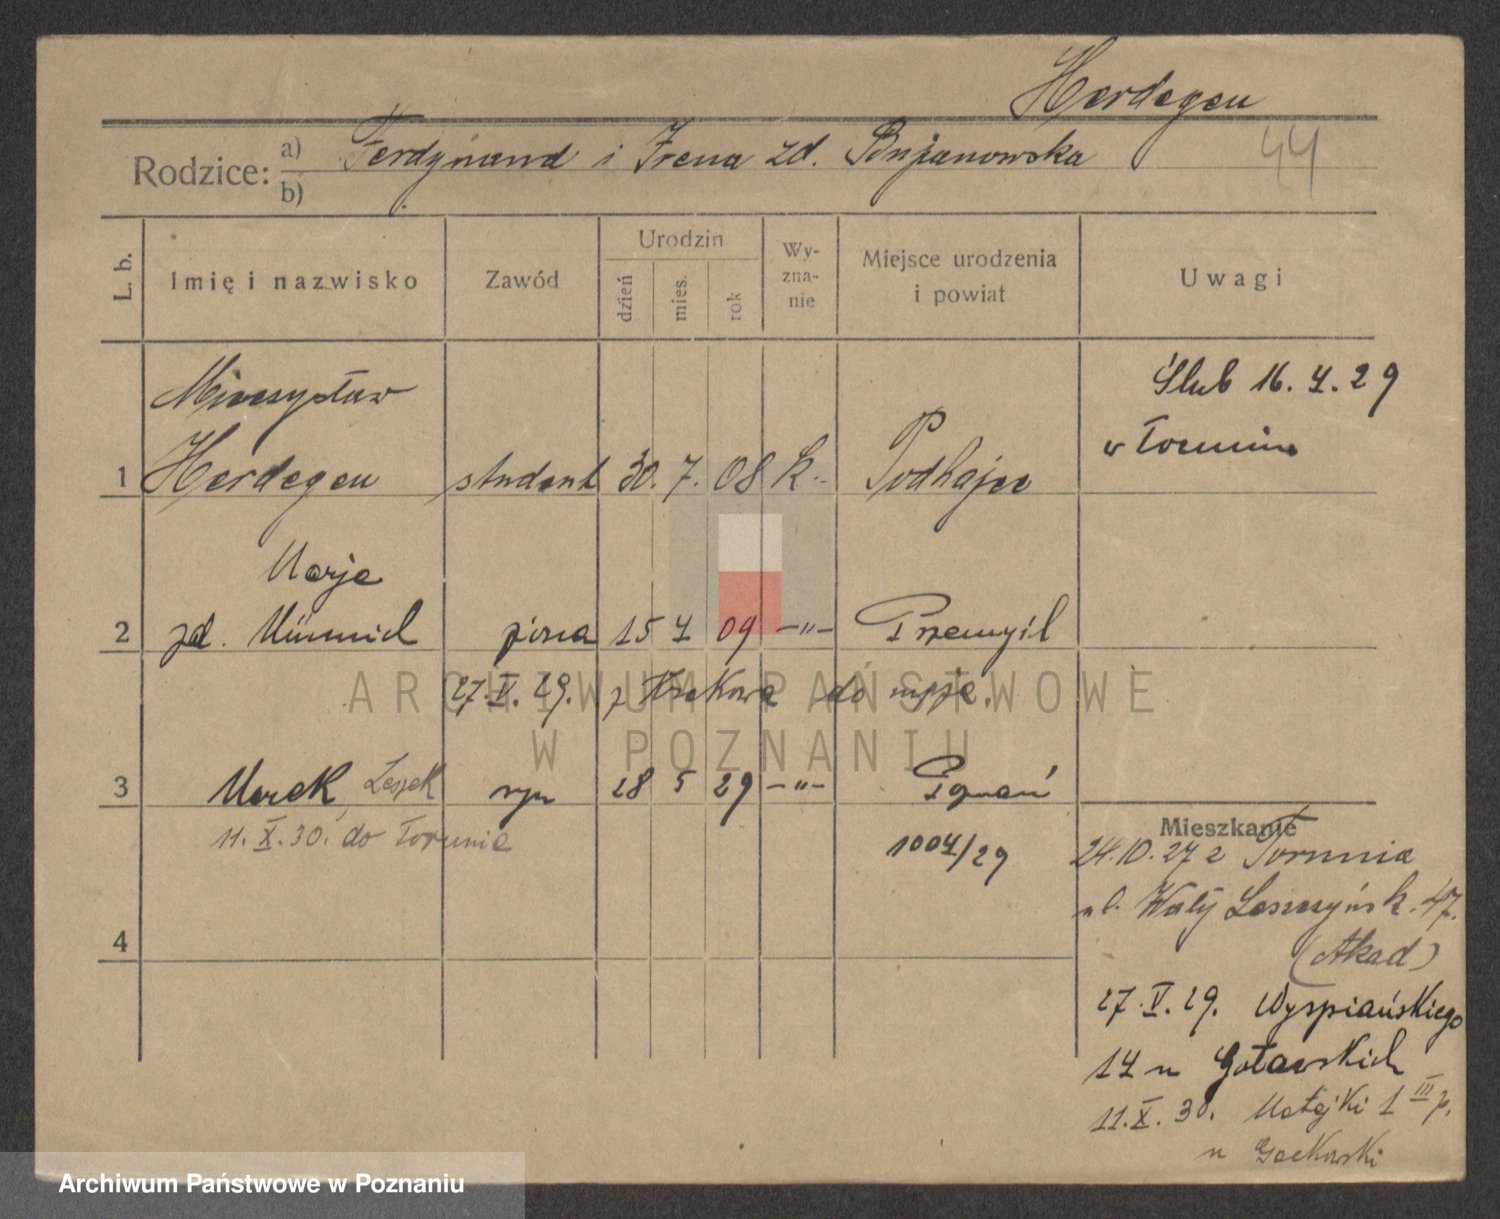 Herdegen
Rodzice: a) Ferdynand i Irena zd. Bujanowska 44
b)
L. b. Imię i nazwisko Zawód Urodzin dzień mies. rok Wy-zna-nie Miejsce urodzenia i powiat Uwagi
Mieczysław Ślub 16. 4. 29
w Toruniu
1 Herdegen student 30. 7. 08 k. Podhajce
Marja
2 zd. Kümmich żona 15 4 09 -"- Przemyśl
27. V. 29. z Krakowa do męża.
3 Marek, Leszek syn 28 5 29 -"- Poznań
11. X. 30. do Torunia 1004/29
4
Mieszkanie
24.10.27 z Torunia
ul. Wały Leszczyńsk. 47.
(Akad)
27. V. 29. Wyspiańskiego
14 u Goławskich
11. X. 30. Matejki 1 III p.
u
ARCHIWUM PAŃSTWOWE
W POZNANIU
Archiwum Państwowe w Poznaniu